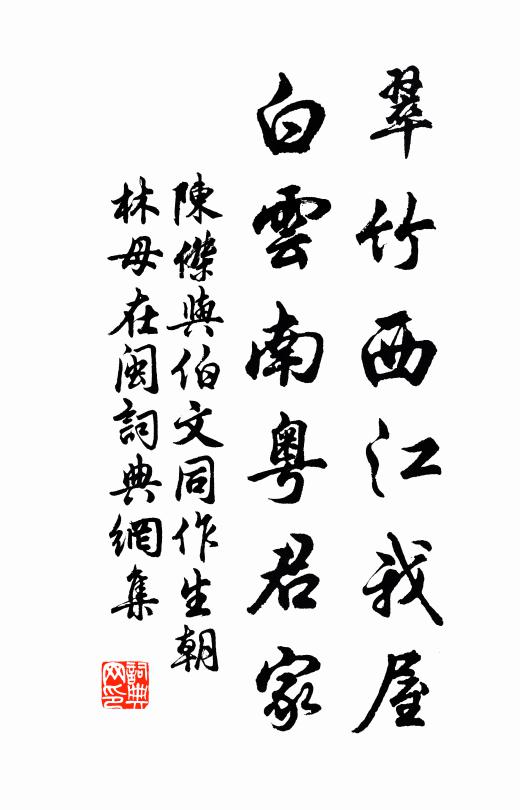 翠竹西江我屋
白雲南粵君家
陳傑與伯文同作生朝
林母在閩詞典網集
詞典
網印